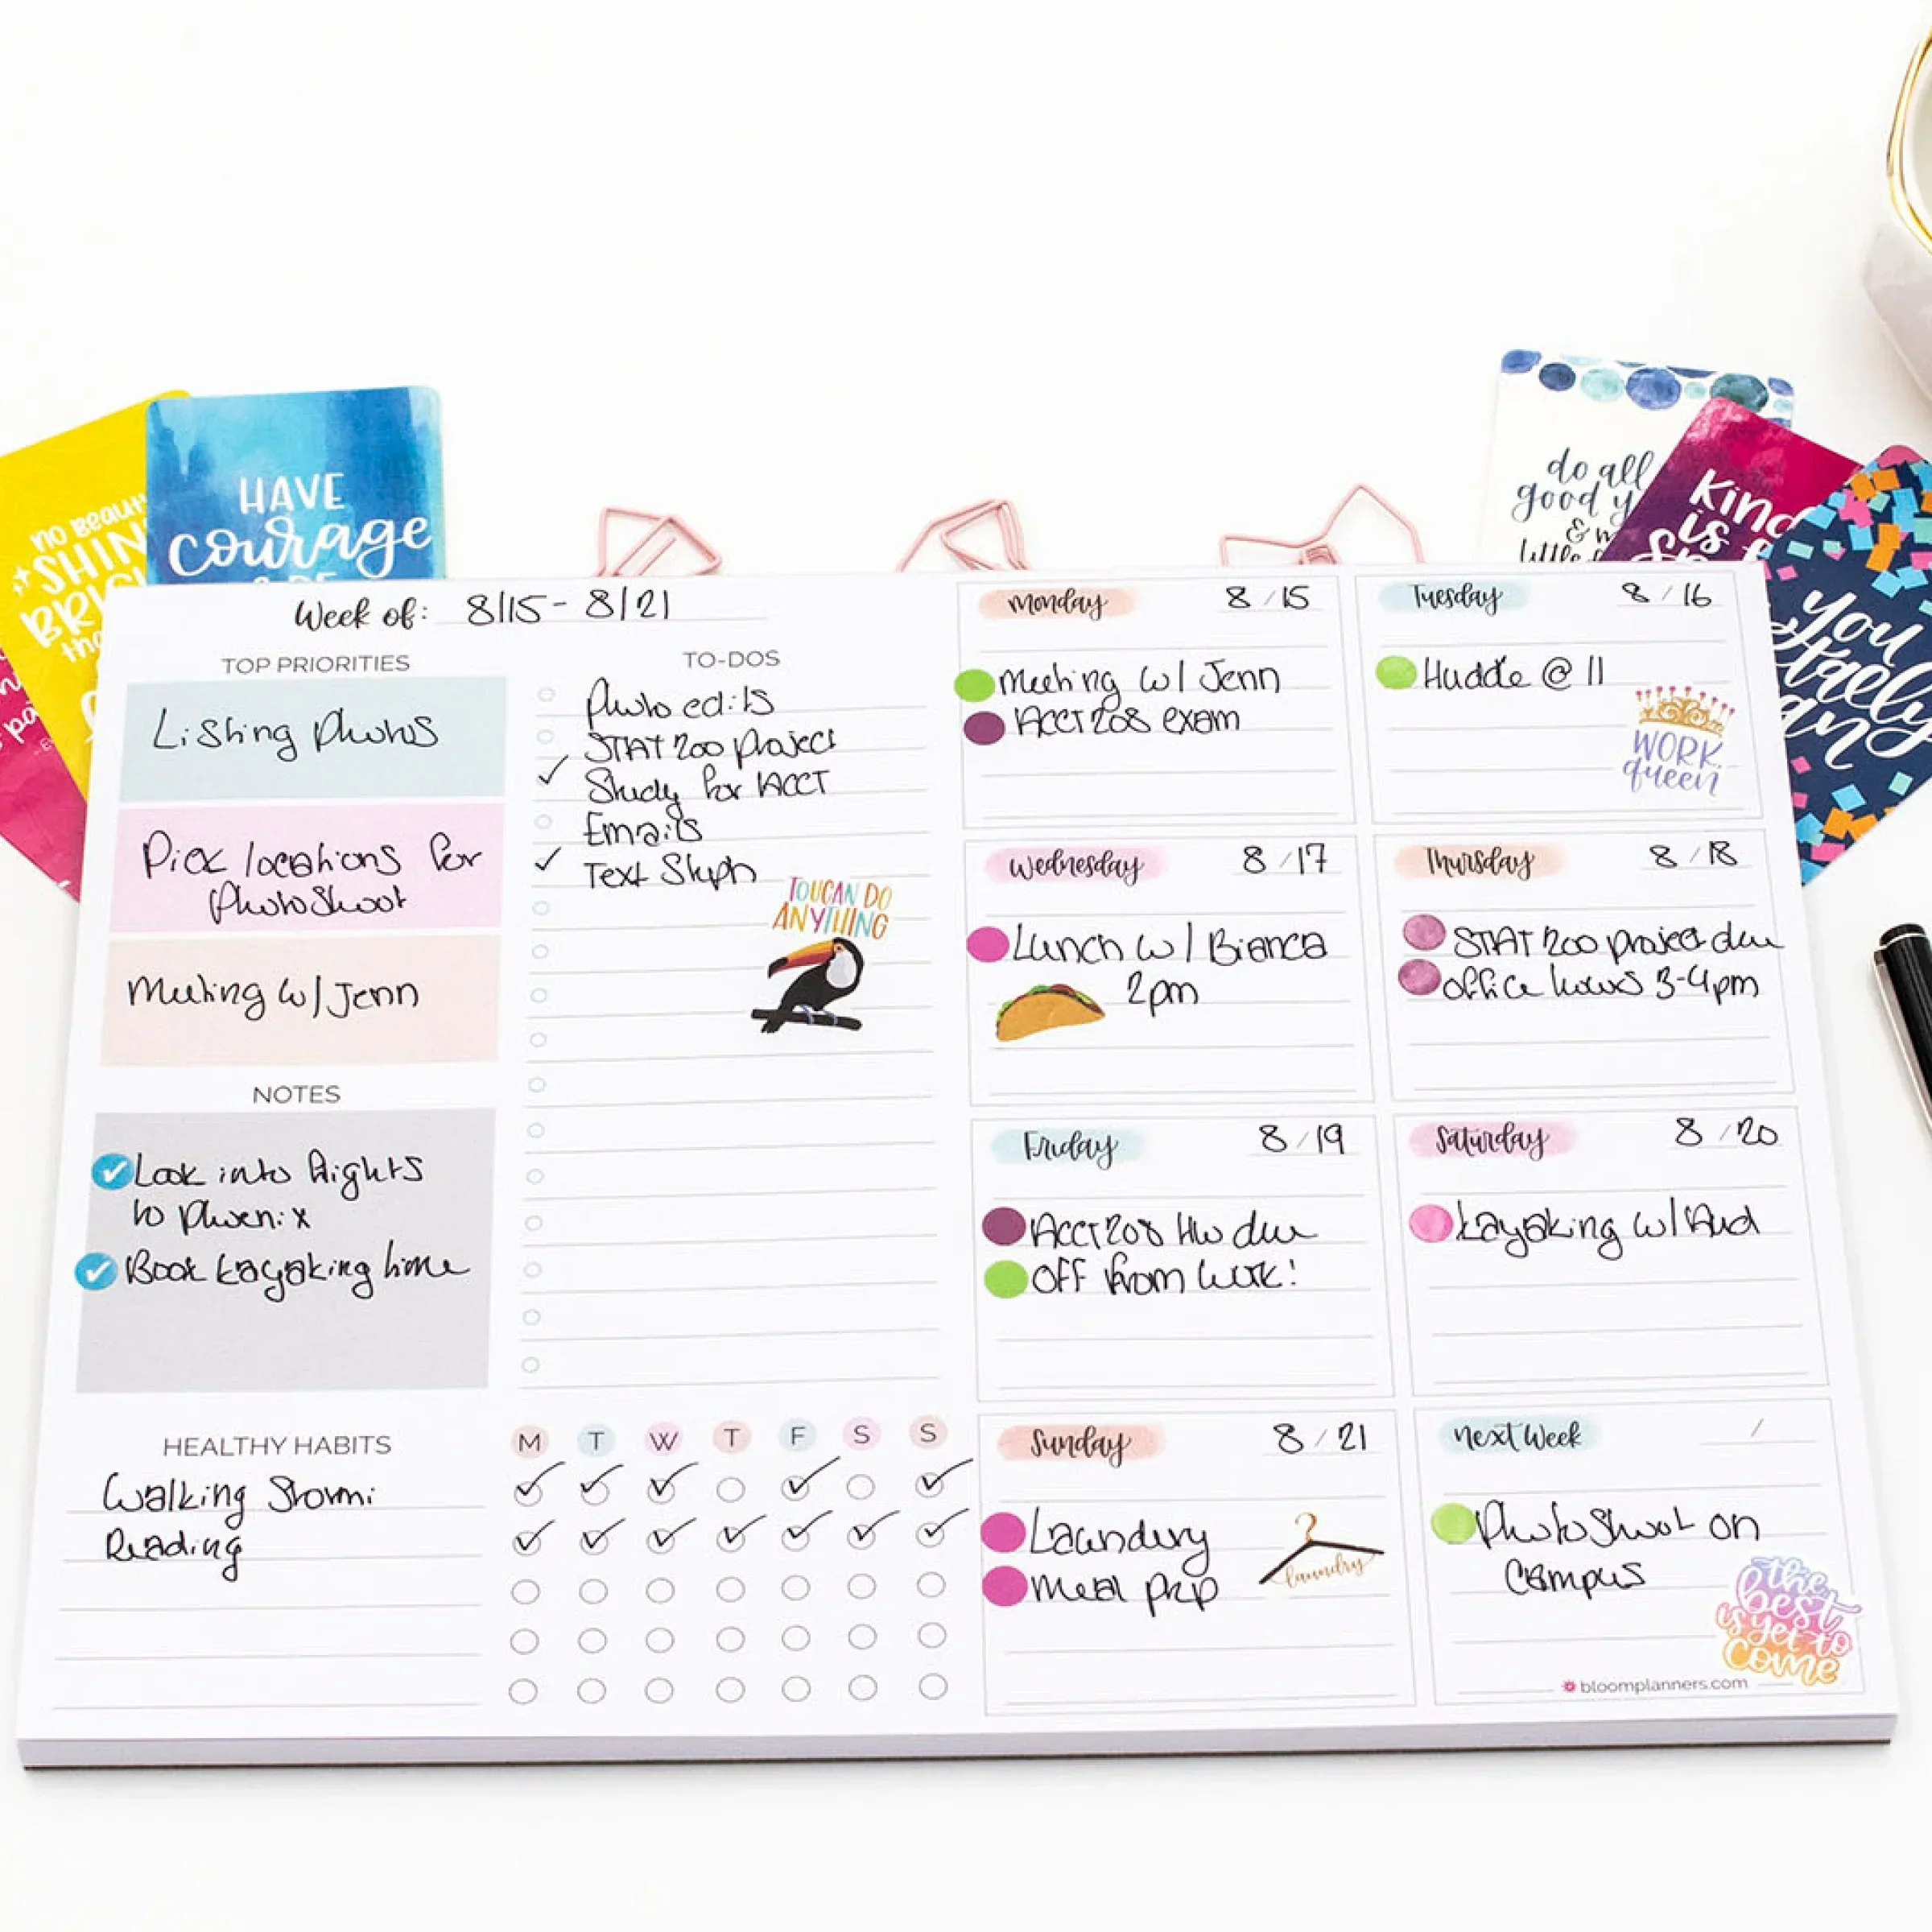 NO BEAUTY
SHINES
BRIGHTER
HAVE
courage
& BE
do all
good y
& m
little
Kind
is
You
totally
can
Week of: 8/15 - 8/21
TOP PRIORITIES
Listing Photos
Pick locations for
Photo Shoot
Meeting w/ Jenn
NOTES
Look into flights
to Phoenix
Book kayaking time
TO-DOS
Photo edits
STAT 200 project
Study for ACCT
Emails
Text Steph
TOUCAN DO
ANYTHING
HEALTHY HABITS
M T W T F S S
Walking Stormi
Reading
Monday 8/15
Meeting w/ Jenn
ACCT 208 exam
Tuesday 8/16
Huddle @ 11
WORK
queen
Wednesday 8/17
Lunch w/ Bianca
2pm
Thursday 8/18
STAT 200 project due
office hours 3-4pm
Friday 8/19
ACCT 208 HW due
OFF from work!
Saturday 8/20
Kayaking w/ Aud
Sunday 8/21
Laundry
laundry
Meal prep
Next Week /
Photo Shoot on
Campus
the
best
is yet to
come
bloomplanners.com